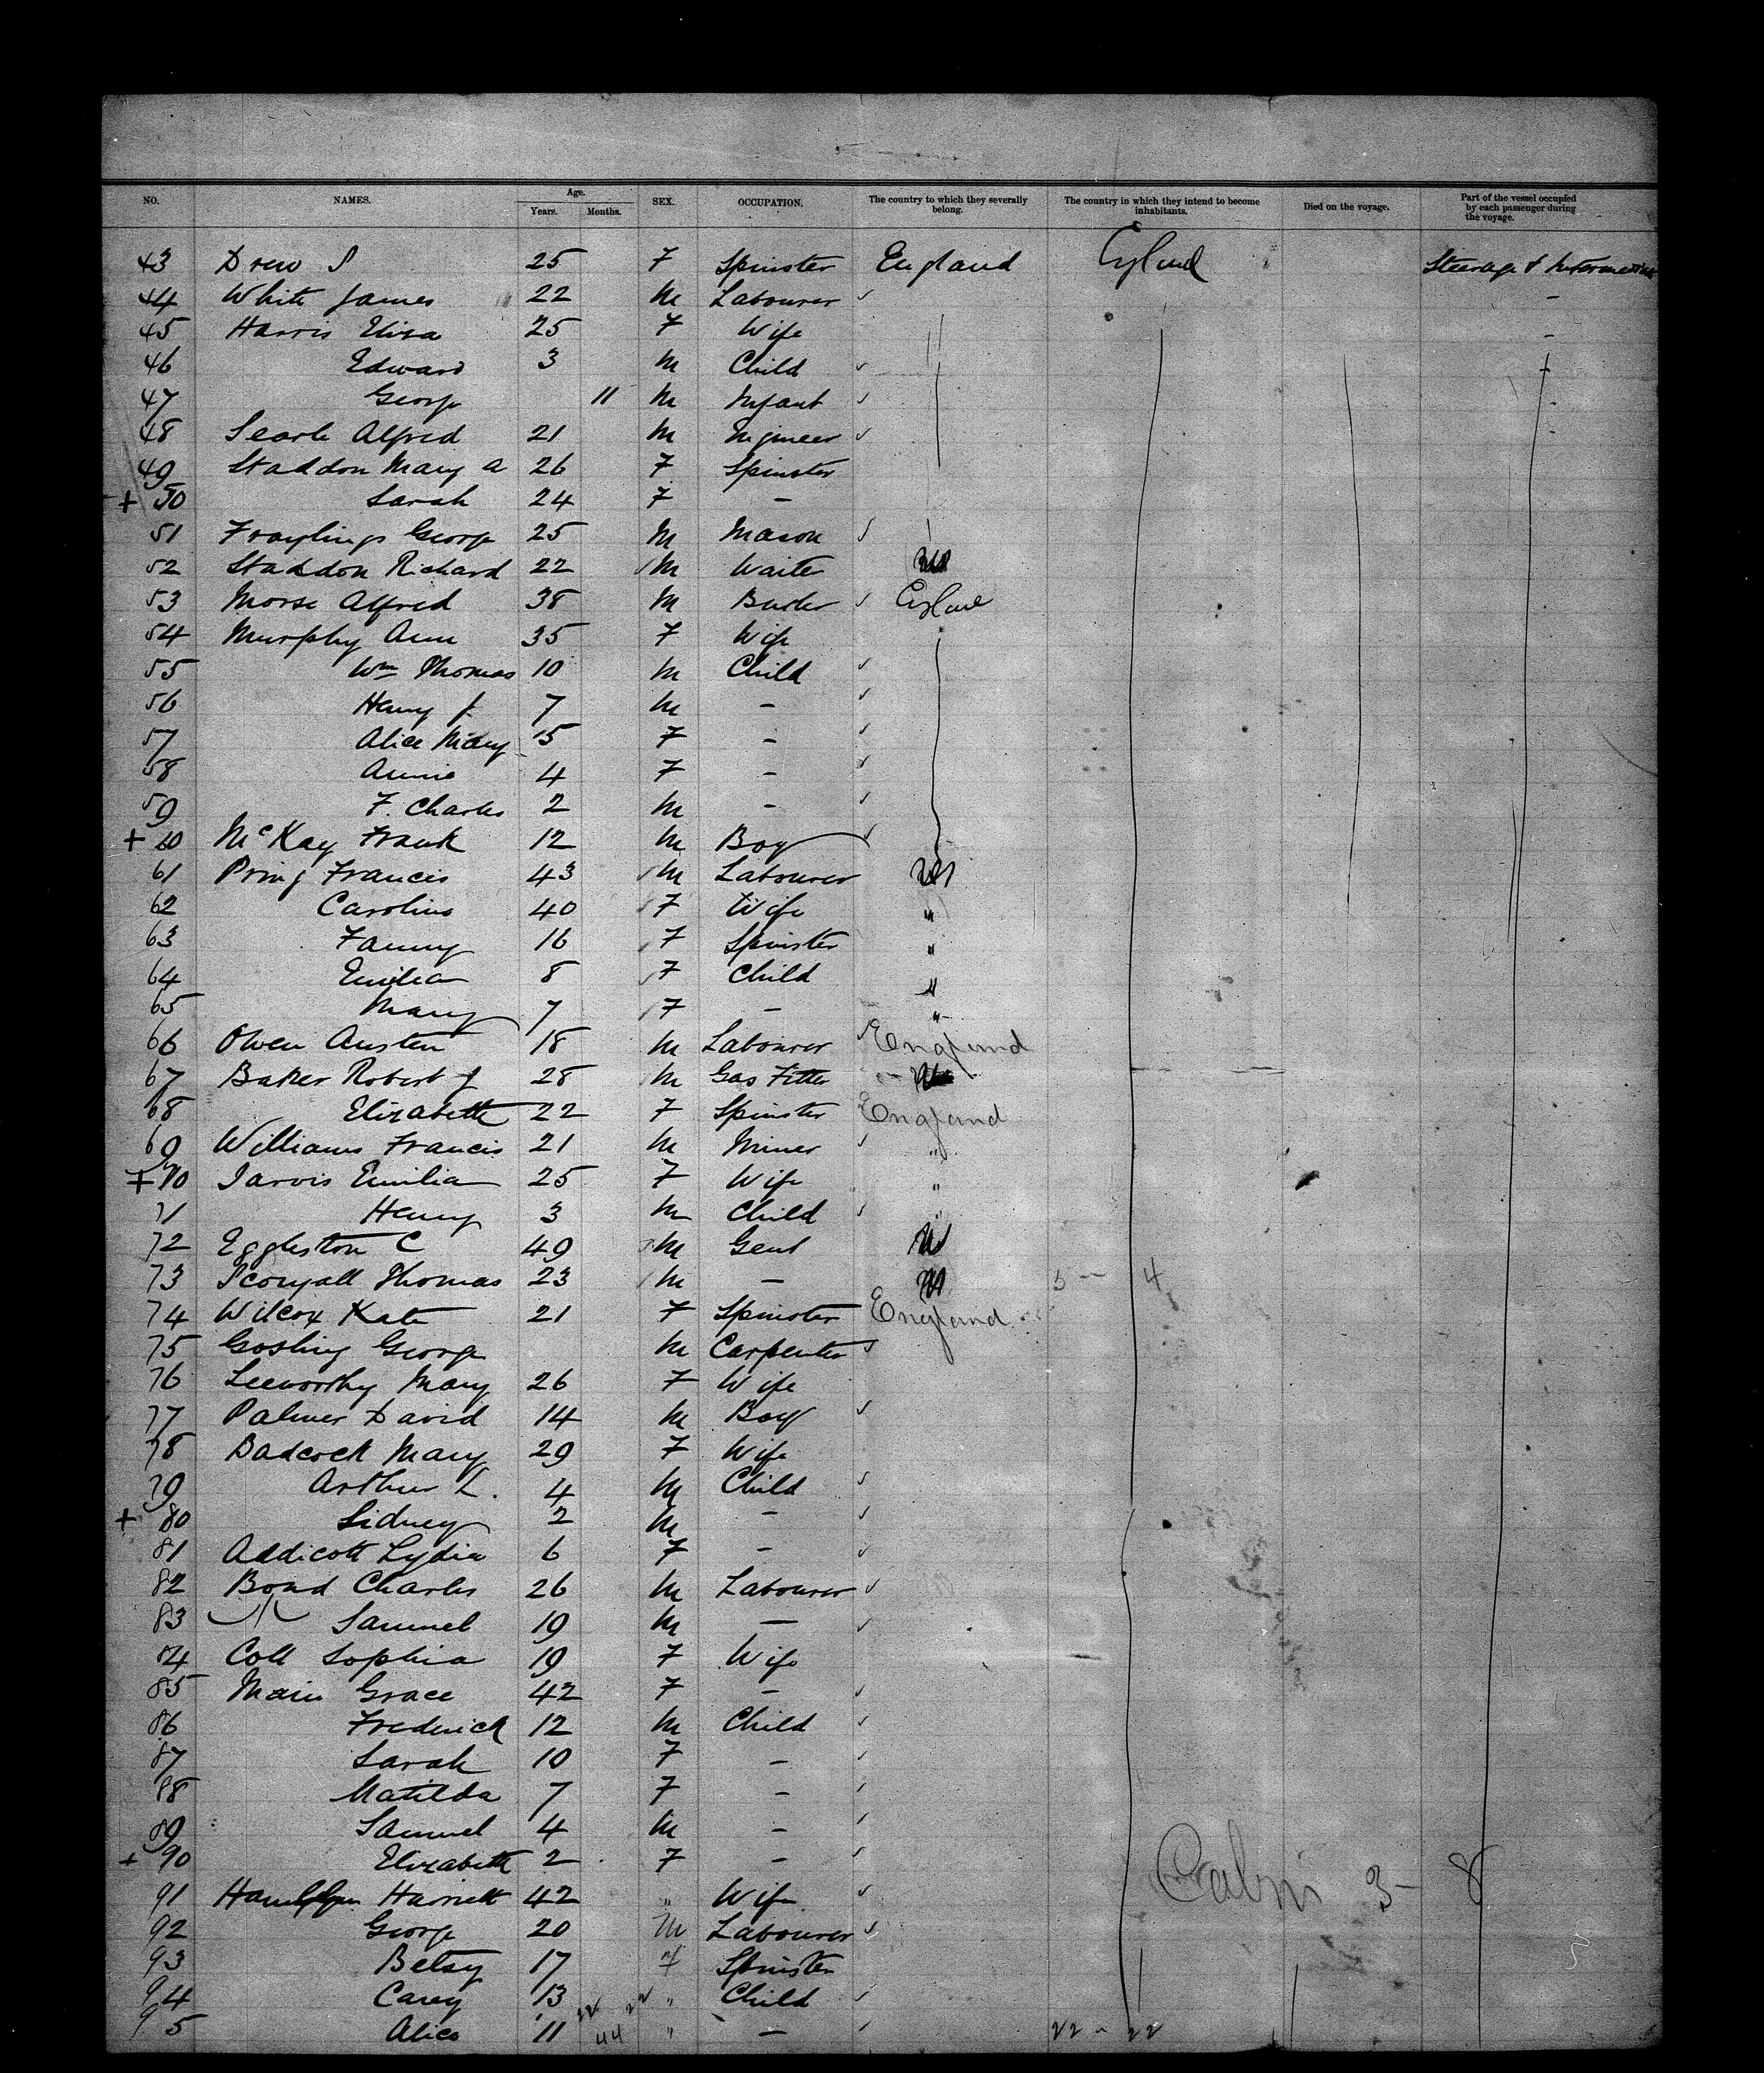 NO. NAMES. Age. Years. Months. SEX. OCCUPATION. The country to which they severally belong. The country in which they intend to become inhabitants. Died on the voyage. Part of the vessel occupied by each passenger during the voyage.
43 Drew S 25 F Spinster England England Steerage &
44 White James 22 M Labourer ✓ -
45 Harris Eliza 25 F Wife -
46 Edward 3 M Child ✓
47 George 11 M Infant ✓ -
48 Searle Alfred 21 M Engineer ✓ -
49 Staddon Mary A 26 F Spinster
+ 50 Sarah 24 F -
51 Fraylings George 25 M Mason ✓
52 Staddon Richard 22 M Waiter
53 Morse Alfred 38 M Butler ✓ England
54 Murphy Ann 35 F Wife
55 Wm Thomas 10 M Child ✓
56 Henry J. 7 M - ✓
57 Alice Mary 5 F - ✓
58 Annie 4 F - ✓
59 F. Charles 2 M - ✓
+ 60 McKay Frank 12 M Boy ✓
61 Pring Francis 43 M Labourer
62 Caroline 40 F Wife "
63 Fanny 16 F Spinster "
64 Emilia 8 F Child "
65 Mary 7 F - "
66 Owen Austen 18 M Labourer ✓ England
67 Baker Robert J 28 M Gas Fitter
68 Elizabeth 22 F Spinster England
69 Williams Francis 21 M Miner ✓ "
+ 70 Jarvis Emilia 25 F Wife "
71 Henry 3 M Child ✓ "
72 Eggleston C 49 M Gent
73 Thomas 23 M - 5 - 4
74 Wilcox Kate 21 F Spinster England
75 Gosling George M Carpenter ✓
76 Leeworthy Mary 26 F Wife
77 Palmer David 14 M Boy ✓
78 Badcock Mary 29 F Wife
79 Arthur L. 4 M Child ✓
+ 80 Sidney 2 M - ✓
81 Addicott Lydia 6 F - ✓
82 Bond Charles 26 M Labourer ✓
83 Samuel 19 M - ✓
84 Coll Sophia 19 F Wife
85 Main Grace 42 F - ✓
86 Frederick 12 M Child ✓
87 Sarah 10 F - ✓
88 Matilda 7 F - ✓
89 Samuel 4 M - ✓
+ 90 Elizabeth 2 F - ✓
91 Harriett 42 " Wife ✓ Cabin 3 - 8
92 George 20 M Labourer ✓
93 Betsy 17 F Spinster
94 Carey 13 22 22 " Child ✓
95 Alice 11 44 " - ✓ 22 - 22